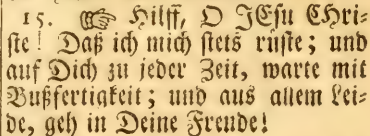 15. ☞ Hilff, O JEsu CHri-
ste! Daß ich mich stets rüste; und
auf Dich zu jeder Zeit, warte mit
Bußfertigkeit; und aus allem Lei-
de, geh in Deine Freude!